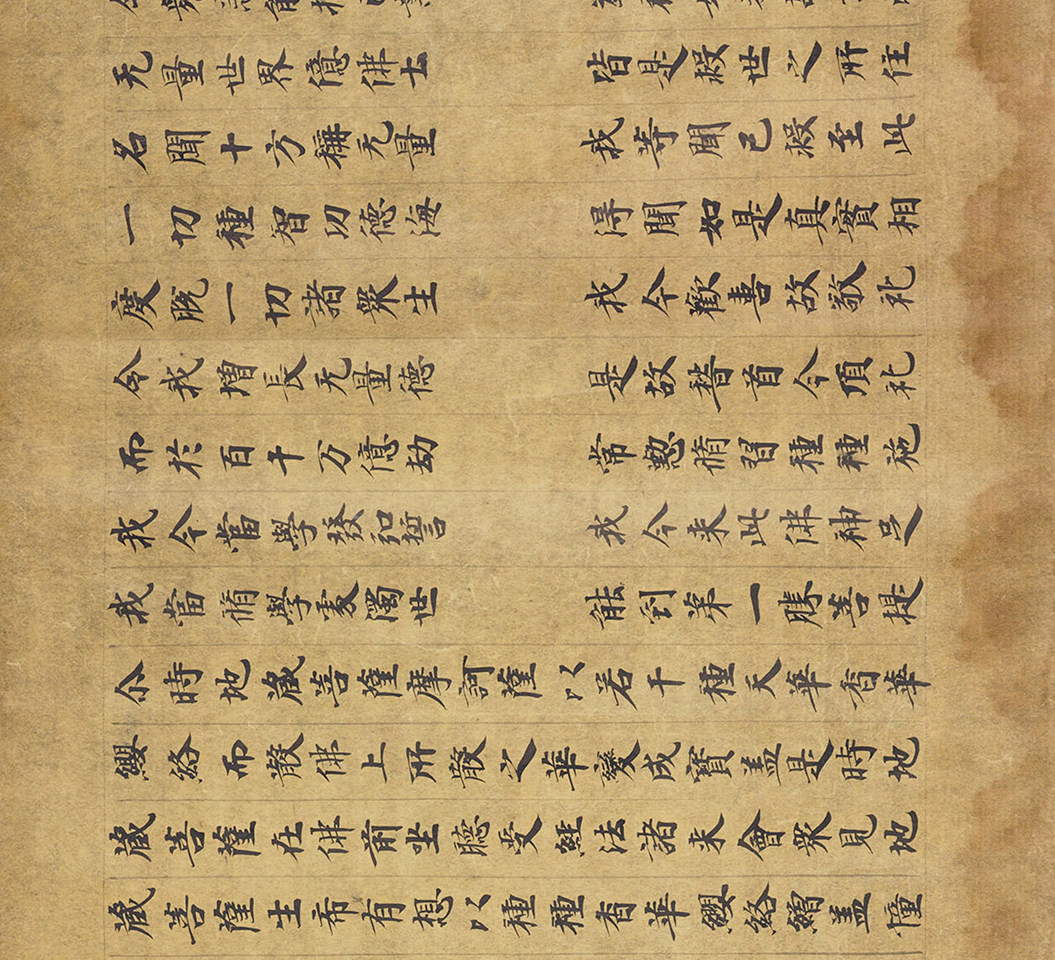 无量世界億佛土 皆是世之所住
名聞十方稱无量 我等聞已至此
一切種智功德海 得聞如是真實相
度脫一切諸衆生 我今歡喜故敬礼
令我增長无量德 是故稽首今頂礼
而於百千万億劫 常懃脩習種種施
我今當學發弘誓 我今来此佛神足
我當脩學處濁世 能到第一勝菩提
尒時地藏菩薩摩訶薩以若干種天華香華
瓔珞而散佛上所散之華變成寶盖是時地
藏菩薩在佛前坐聽受經法諸来會衆見地
藏菩薩生希有想以種種香華瓔珞繒盖幢